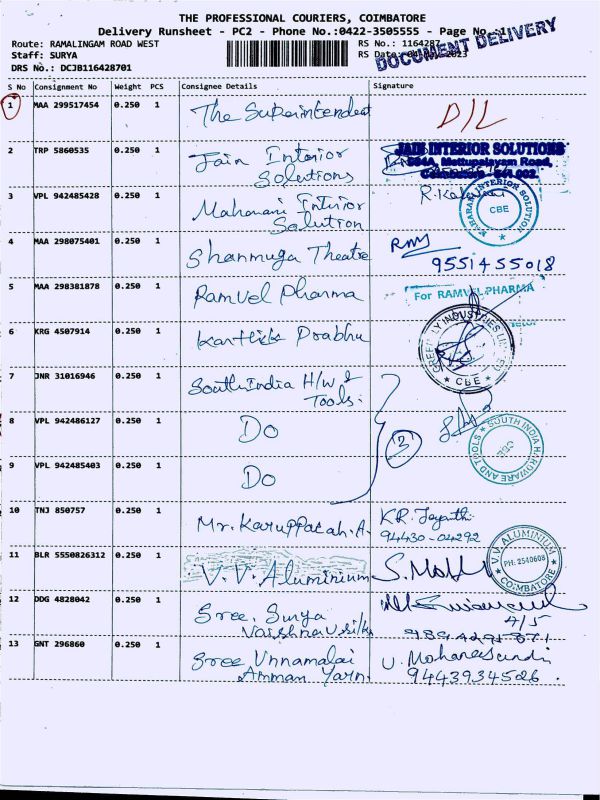 THE PROFESSIONAL COURIERS, COIMBATORE
Delivery Runsheet - PC2 - Phone No.:0422-3505555 - Page No.
DOCUMENT DELIVERY
Route: RAMALINGAM ROAD WEST
RS No.: 1164287
Staff: SURYA
RS Date: 2023
DRS No.: DCJB116428701
S No Consignment No Weight PCS Consignee Details Signature
1 MAA 299517454 0.250 1 The Superintendent D/L
2 TRP 5860535 0.250 1 Jain Interior
Solutions
JAIN INTERIOR SOLUTIONS
Mettupalayam Road,
Coimbatore - 641 002.
3 VPL 942485428 0.250 1 Maharani Interior
Solution
CBE
4 MAA 298075401 0.250 1 Shanmuga Theatre
9551455018
5 MAA 298381878 0.250 1 Ramvel Pharma
For RAMVEL PHARMA
6 KRG 4507914 0.250 1 Karthik Prabhu
INDUSTRIES LIMITED
* CBE *
7 JNR 31016946 0.250 1 South India H/W &
Tools.
8 VPL 942486127 0.250 1 Do
3
SOUTH INDIA HARDWARE AND TOOLS
CBE
9 VPL 942485403 0.250 1 Do
10 TNJ 850757 0.250 1 Mr. Karuppaiah. A.
K.R. Jayanthi
94430-04292
11 BLR 5550826312 0.250 1 V.V. Aluminium
V.V. ALUMINIUM
PH: 2540608
COIMBATORE
12 DDG 4828042 0.250 1 Sree. Surya
Vaishnav silks
4/5
13 GNT 296860 0.250 1 Sree Unnamalai
Amman Yarn.
U. Mohanasundri
9443934526.